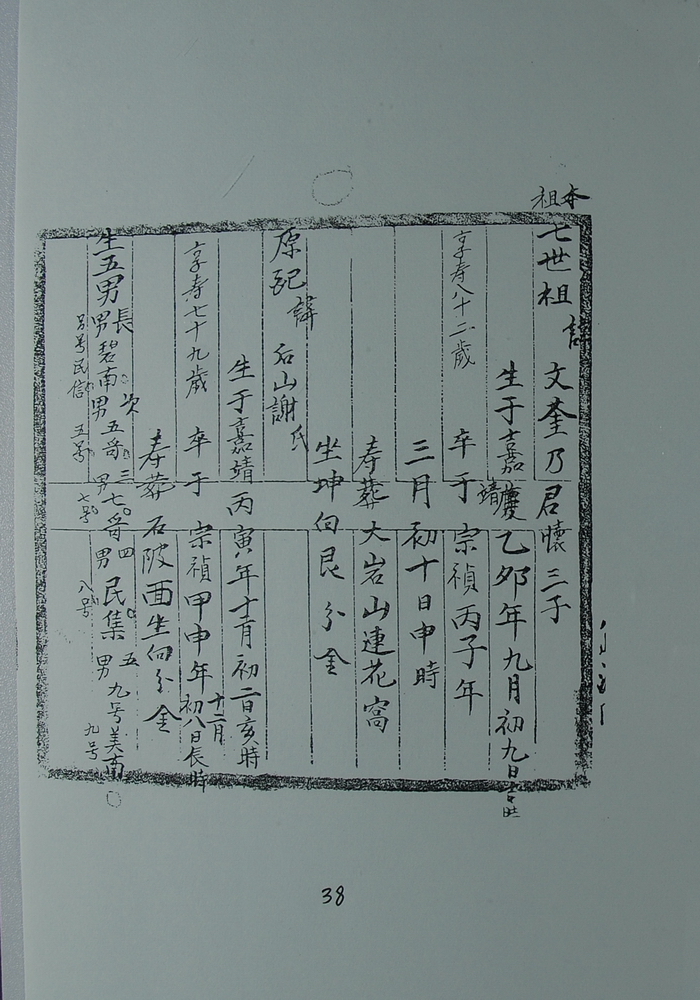 本祖
七世祖諱文荃乃君懷三子
生于嘉慶乙夘年九月初九日吉時
靖
享寿八十二歲
卒于宗禎丙子年
三月初十日申時
寿葬大岩山連花窩
坐坤向艮分金
原配諱石山謝氏
生于嘉靖丙寅年十月初二日亥時
享寿七十九歲
卒于宗禎甲申年十二月初八日長時
寿葬石陂面坐向分金
生五男長男碧南次男五哥三男七哥四男民集五男九号美南
号民信五号七号八号九号
38